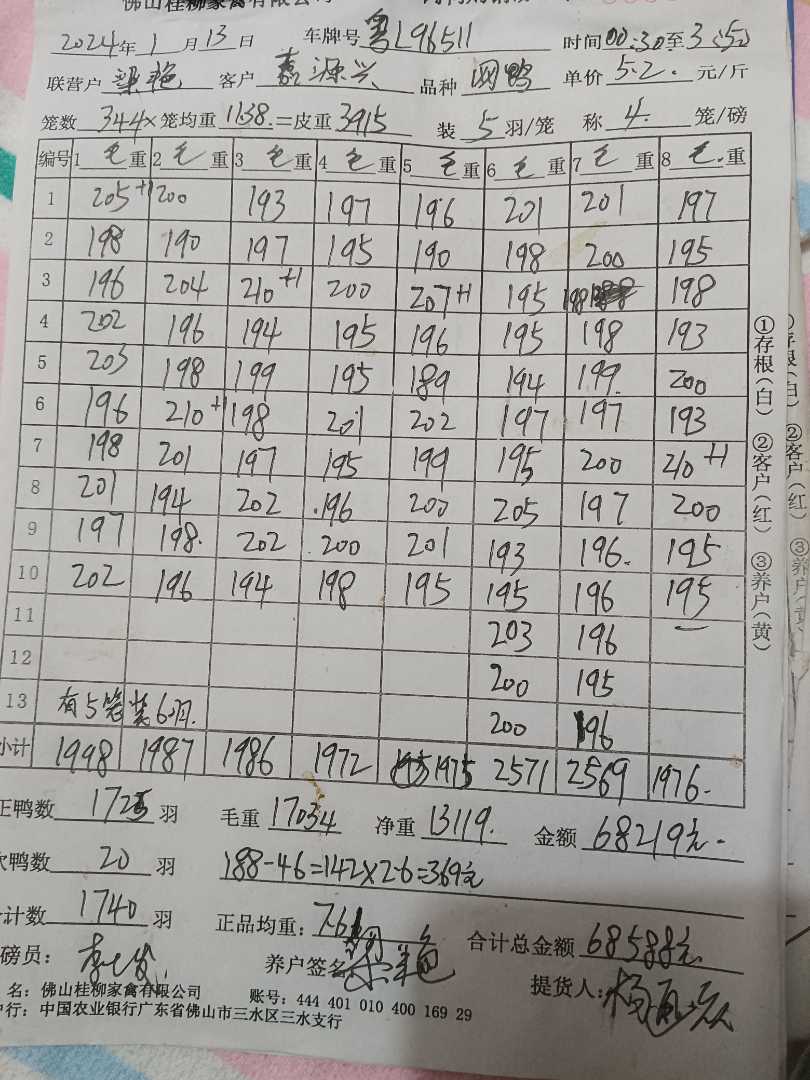 佛山桂柳家禽有限公司
2024年1月13日 车牌号 粤L96511 时间00:30至3:50
联营户 梁艳 客户 嘉源兴 品种 网鸭 单价 5.2. 元/斤
笼数 344×笼均重 11.38.=皮重3915 装 5 羽/笼 称 4. 笼/磅
编号 1 毛 重 2 毛 重 3 毛 重 4 毛 重 5 毛 重 6 毛 重 7 毛 重 8 毛. 重
1 205+1 200 193 197 196 201 201 197
2 198 190 197 195 190 198 200 195
3 196 204 210+1 200 207+1 195 198 198
4 202 196 194 195 196 195 198 193
5 203 198 199 195 189 194 199. 200
6 196 210+1 198 201 202 197 197 193
7 198 201 197 195 199 195 200 210+1
8 201 194 202 .196 200 205 197 200
9 197 198. 202 200 201 193 196. 195
10 202 196 194 198 195 195 196 195
11 203 196 —
12 200 195
13 有5笼装6羽. 200 196
小计 1998 1987 1986 1972 1975 2571 2569 1976.
正鸭数 羽 毛重 17034 净重 13119. 金额 68219元.
次鸭数 20 羽 188-46=142×2.6=369元
合计数 1740 羽 正品均重: 7.61 合计总金额 68588元.
磅员: 养户签名 提货人:
名: 佛山桂柳家禽有限公司 账号: 444 401 010 400 169 29
户行: 中国农业银行广东省佛山市三水区三水支行
①存根(白) ②客户(红) ③养户(黄)